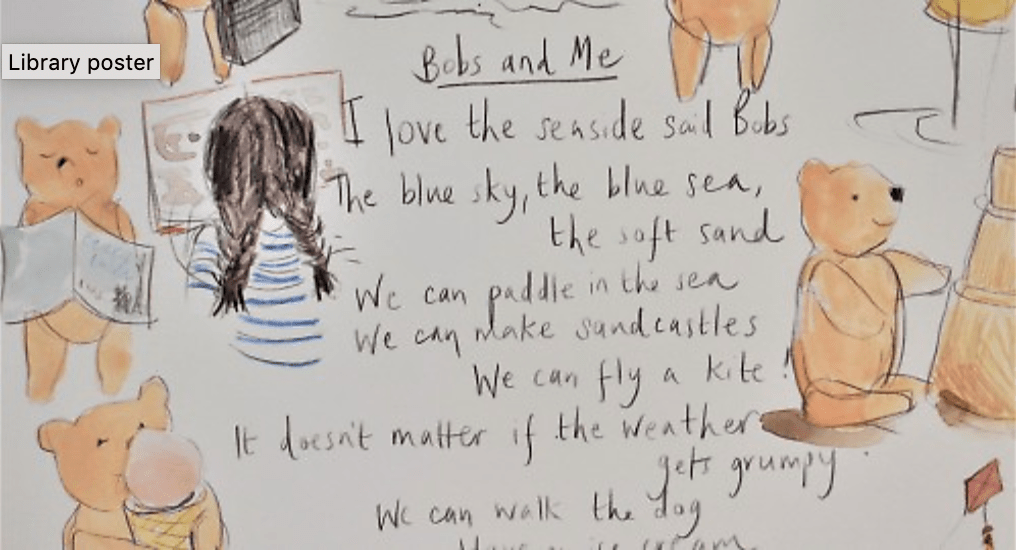 Library poster
Bobs and Me
I love the seaside said Bobs
The blue sky, the blue sea,
the soft sand
We can paddle in the sea
We can make sandcastles
We can fly a kite!
It doesn't matter if the weather
gets grumpy.
We can walk the dog
ice cream